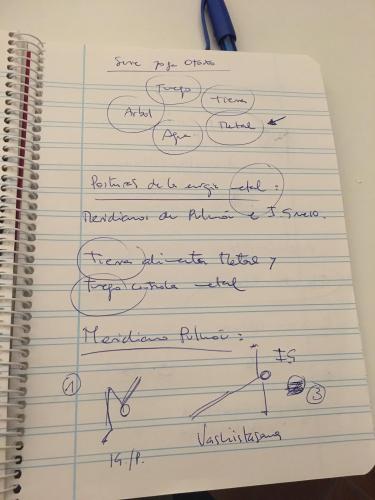 Serie yoga Otoño
Fuego
Tierra
Arbol
Agua
Metal
Posturas de la energía metal:
Meridianos de Pulmón e I Grueso.
Tierra alimenta Metal y
Fuego controla metal
Meridiano Pulmón:
1
IG
3
IG/P.
Vashistasana